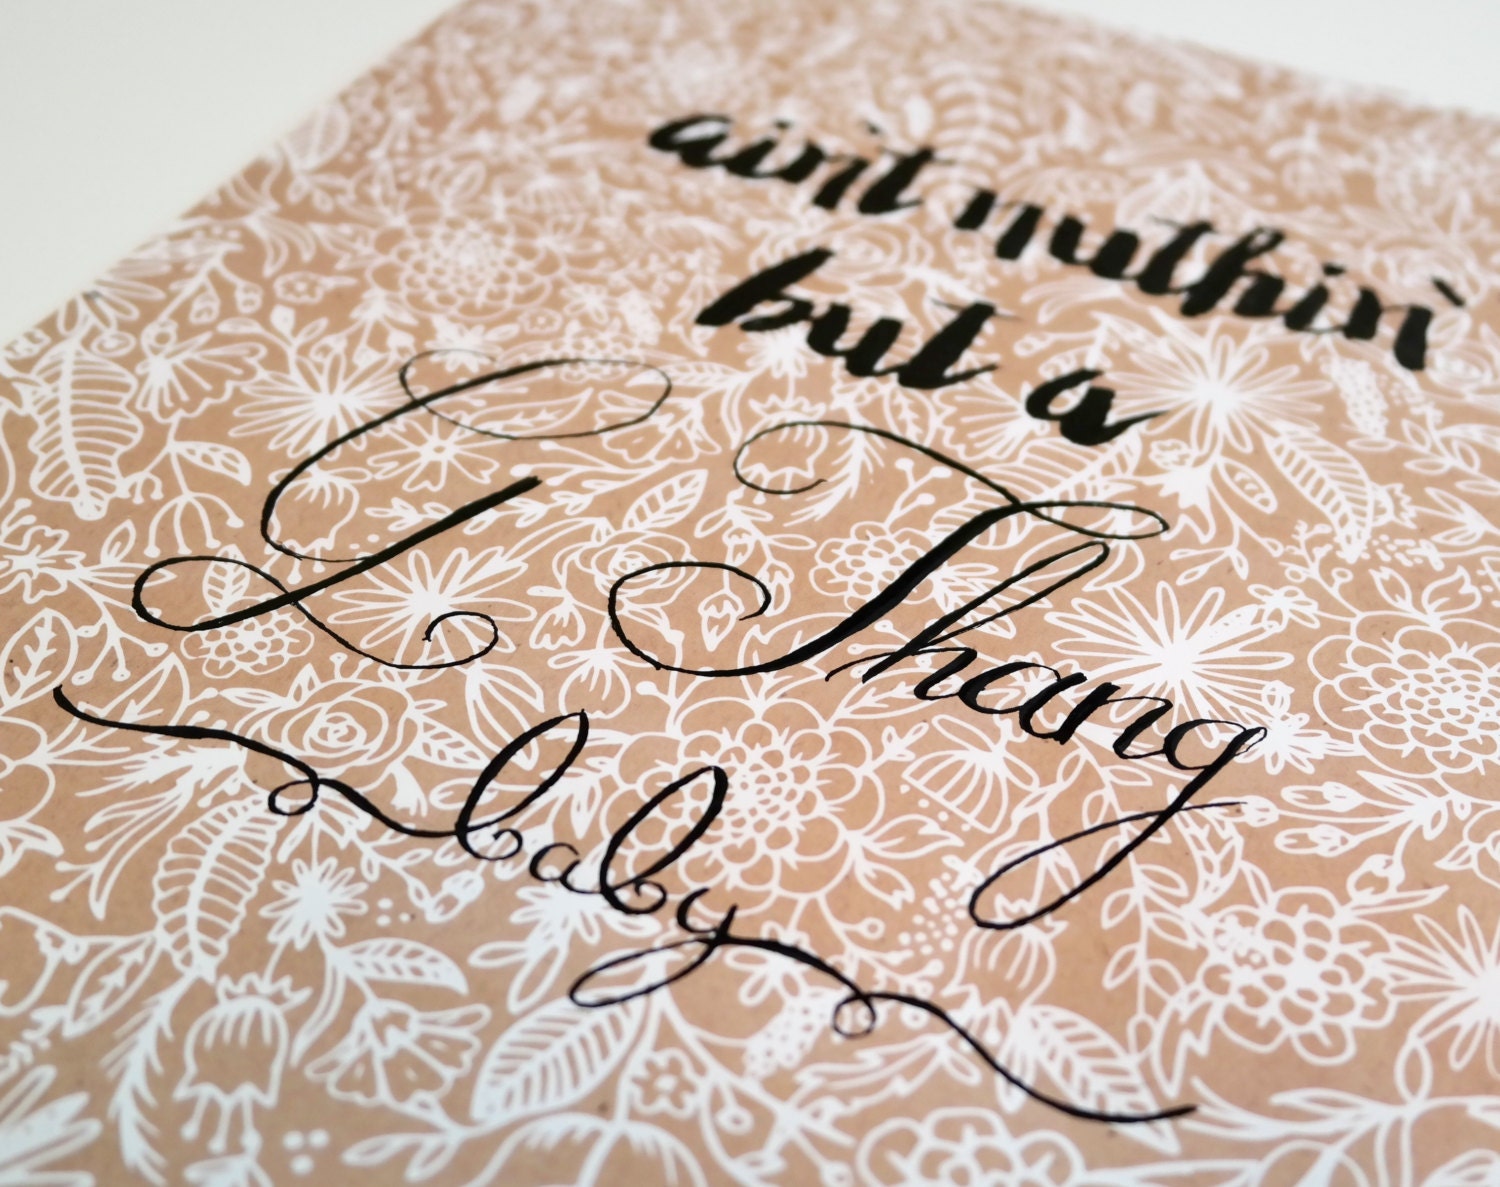 ain't nuthin'
but a
G Thang
baby